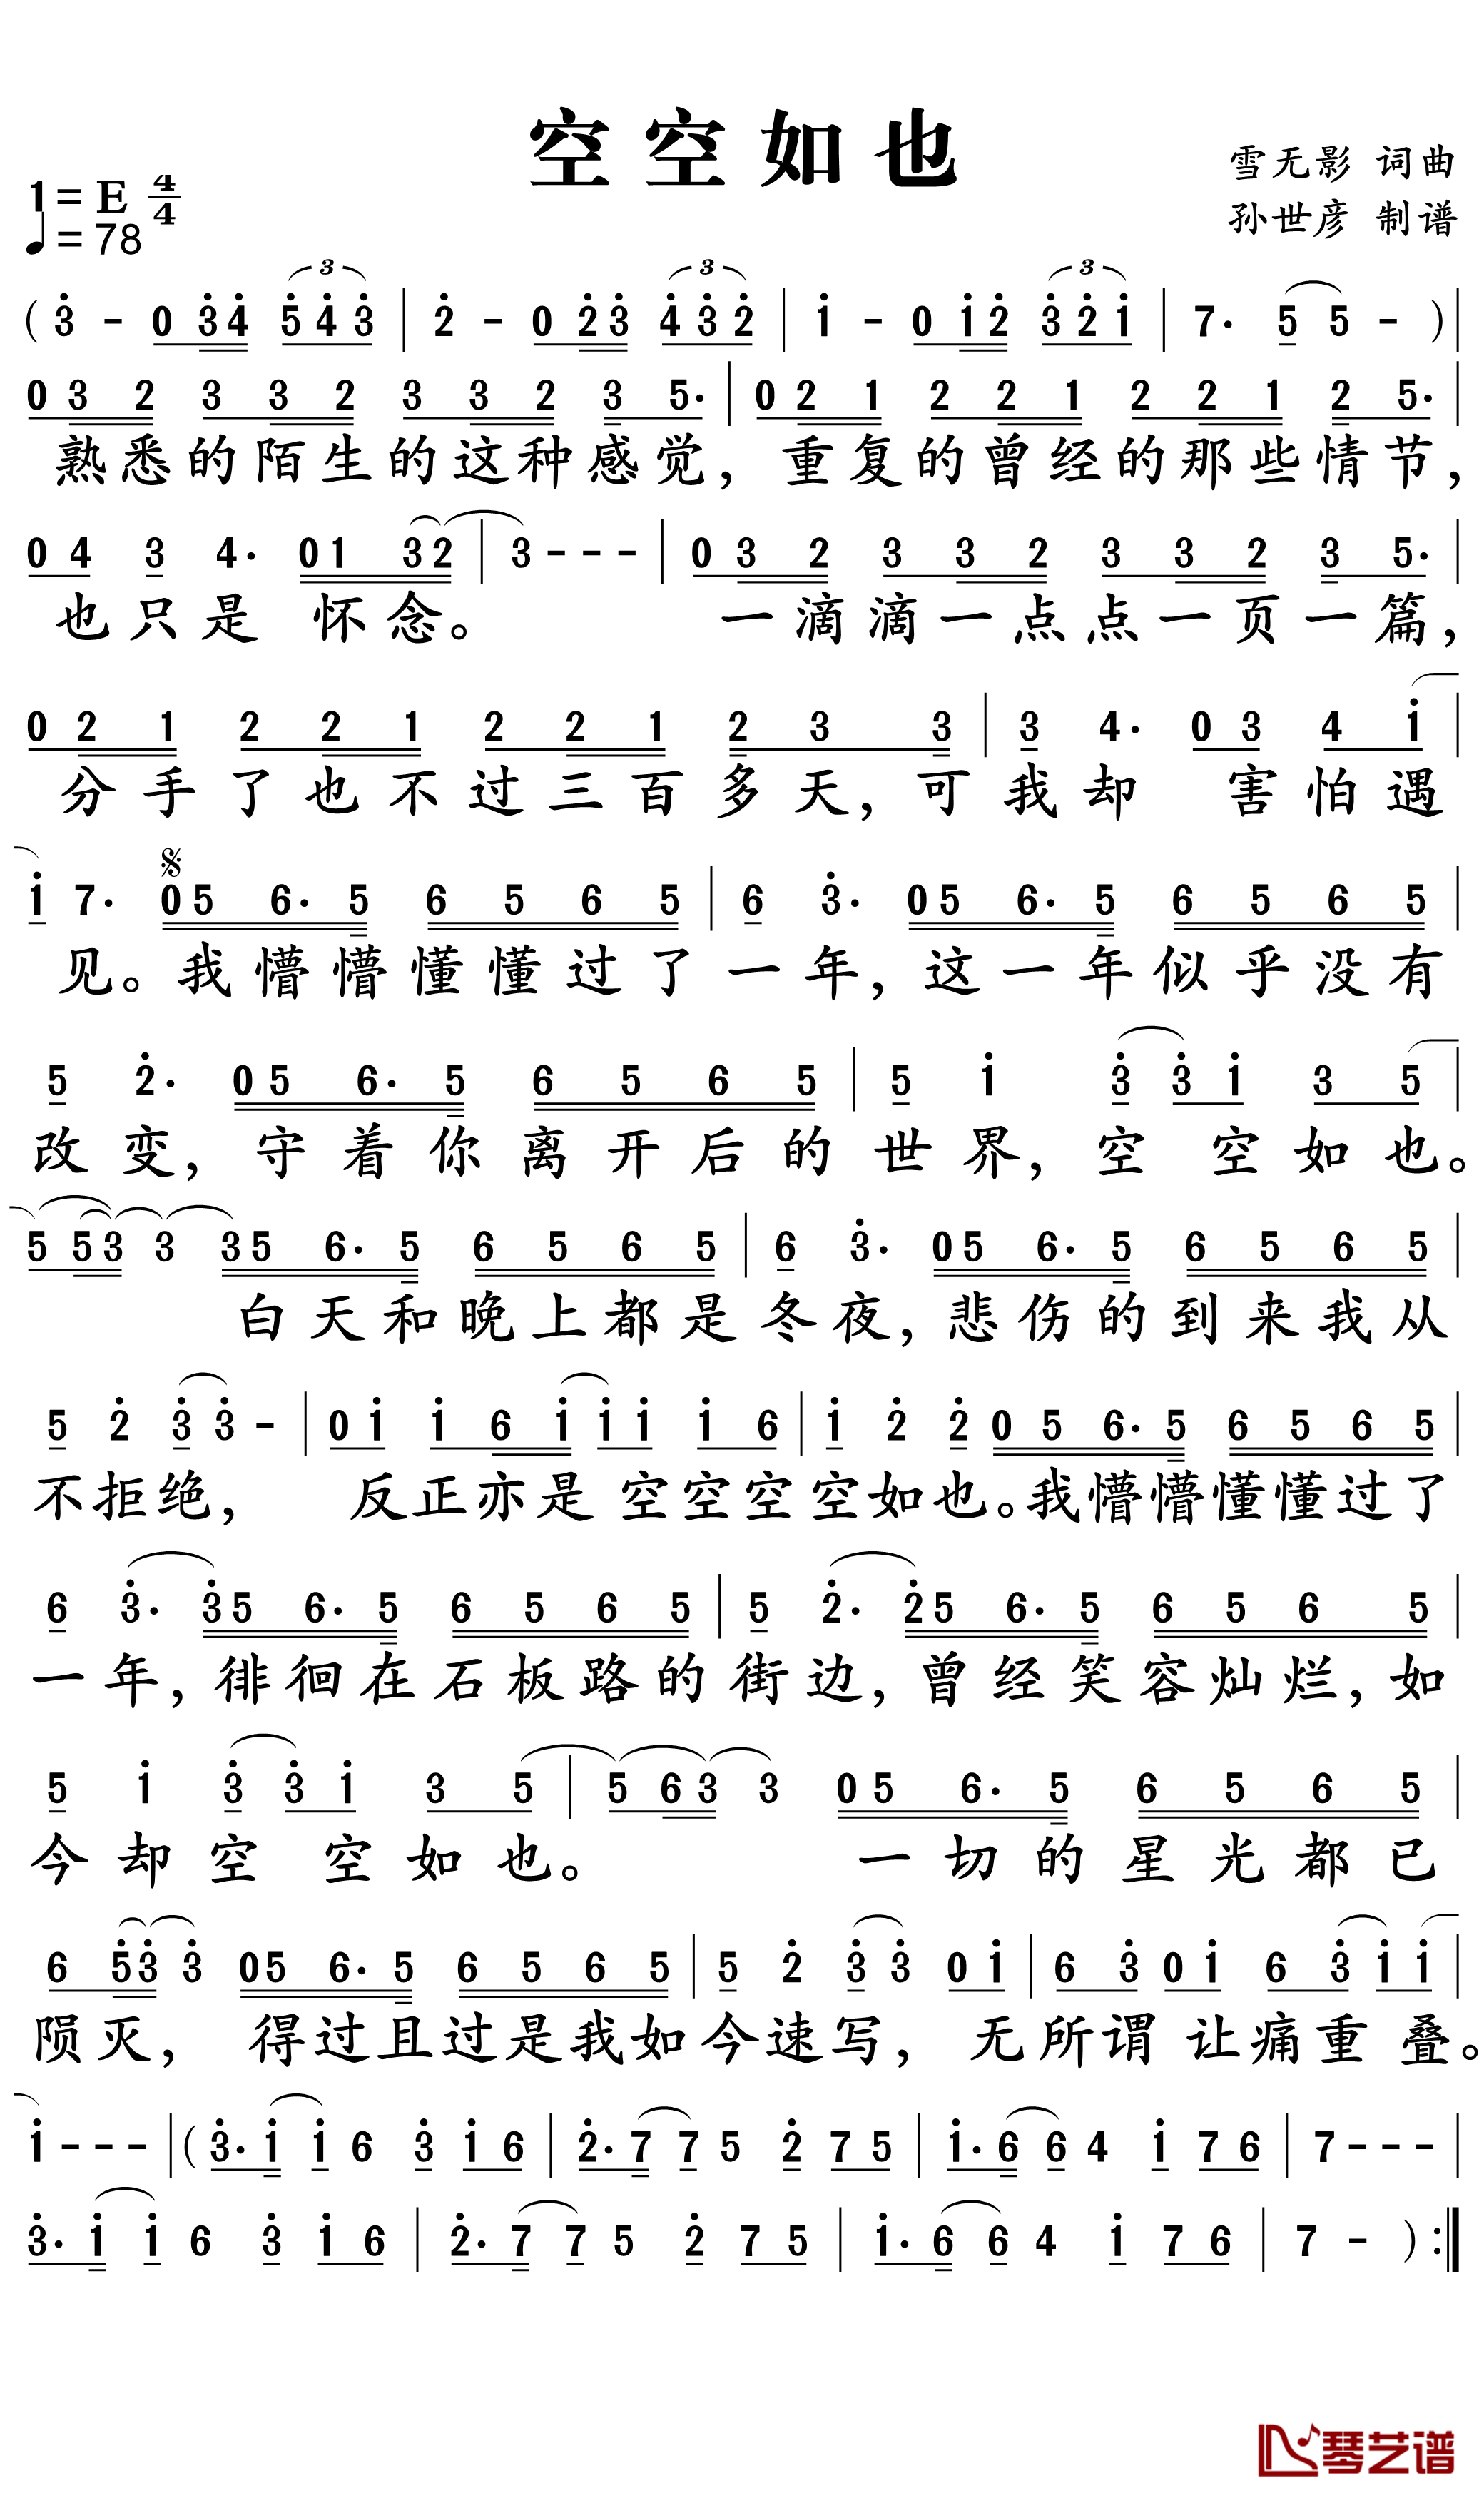 空空如也
雪无影 词曲
1=E 4/4
孙世彦 制谱
♩=78
(3̇ - 0 3̇4̇ 5̇4̇3̇ | 2̇ - 0 2̇3̇ 4̇3̇2̇ | 1̇ - 0 1̇2̇ 3̇2̇1̇ | 7· 5 5 - ) |
0 3 2 3 3 2 3 3 2 3 5· | 0 2 1 2 2 1 2 2 1 2 5· |
熟悉的陌生的这种感觉，重复的曾经的那些情节，
0 4 3 4· 0 1 3 2 | 3 - - - | 0 3 2 3 3 2 3 3 2 3 5· |
也只是 怀念。 一滴滴一点点一页一篇，
0 2 1 2 2 1 2 2 1 2 3 3 | 3 4· 0 3 4 1̇ |
分手了也不过三百多天，可我却 害怕遇
1̇ 7· 𝄋 0 5 6· 5 6 5 6 5 | 6 3̇· 0 5 6· 5 6 5 6 5 |
见。我懵懵懂懂过了一年，这一年似乎没有
5 2̇· 0 5 6· 5 6 5 6 5 | 5 1̇ 3̇ 3̇ 1̇ 3 5 |
改变，守着你离开后的世界，空 空如也。
5 5 3 3 3 5 6· 5 6 5 6 5 | 6 3̇· 0 5 6· 5 6 5 6 5 |
白天和晚上都是冬夜，悲伤的到来我从
5 2̇ 3̇ 3̇ - | 0 1̇ 1̇ 6 1̇ 1̇ 1̇ 1̇ 6 | 1̇ 2̇ 2̇ 0 5 6· 5 6 5 6 5 |
不拒绝， 反正亦是空空空空如也。我懵懵懂懂过了
6 3̇· 3̇ 5 6· 5 6 5 6 5 | 5 2̇· 2̇ 5 6· 5 6 5 6 5 |
一年，徘徊在石板路的街边，曾经笑容灿烂，如
5 1̇ 3̇ 3̇ 1̇ 3 5 | 5 6 3 3 0 5 6· 5 6 5 6 5 |
今却空 空如也。 一切的星光都已
6 5̇ 3̇ 3̇ 0 5 6· 5 6 5 6 5 | 5 2̇ 3̇ 3̇ 0 1̇ | 6 3̇ 0 1̇ 6 3̇ 1̇ 1̇ |
陨灭， 得过且过是我如今速写， 无所谓 让痛重叠。
1̇ - - - | (3̇· 1̇ 1̇ 6 3̇ 1̇ 6 | 2̇· 7 7 5 2̇ 7 5 | 1̇· 6 6 4 1̇ 7 6 | 7 - - - |
3̇· 1̇ 1̇ 6 3̇ 1̇ 6 | 2̇· 7 7 5 2̇ 7 5 | 1̇· 6 6 4 1̇ 7 6 | 7 - ) :||
琴艺谱